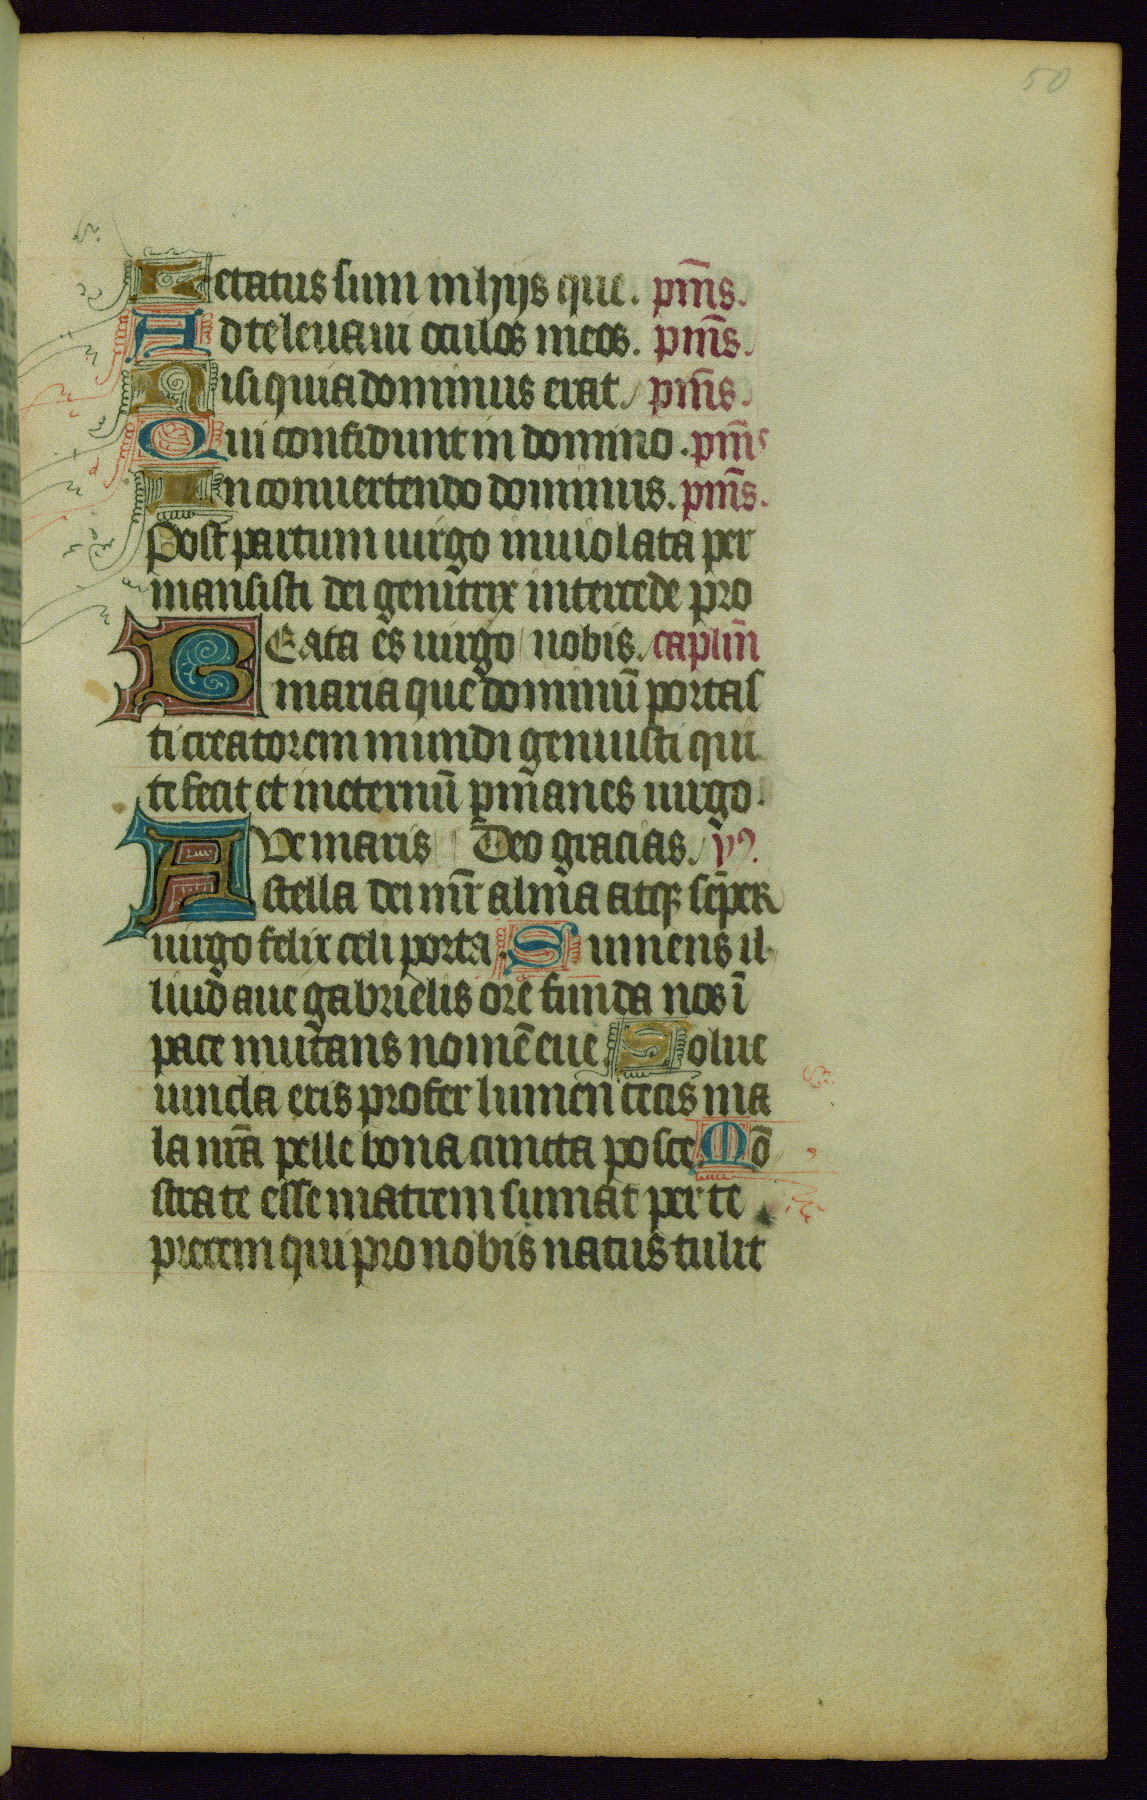 50
Letatus sum in hijs que. pm̄s.
Ad te leuaui oculos meos. pm̄s.
Nisi quia dominus erat. pm̄s.
Qui confidunt in domino. pm̄s
In conuertendo dominus. pm̄s.
Post partum uirgo inuiolata per
mansisti dei genitrix intercede pro
BEata es uirgo nobis. caplm̄
maria que dominū portas
ti creatorem mundi genuisti qui
te fecit et ineternū pm̄anes uirgo.
AVe maris Deo gracias. yꝰ.
stella dei mr̄ alma atqꝫ sēper
uirgo felix celi porta. Sumens il
liud aue gabrielis ore funda nos ī
pace mutans nomē eue. Solue
uincla reis profer lumen cecis ma
la nrā pelle bona cuncta posce. Mō
stra te esse matrem sumat per te
precem qui pro nobis natus tulit